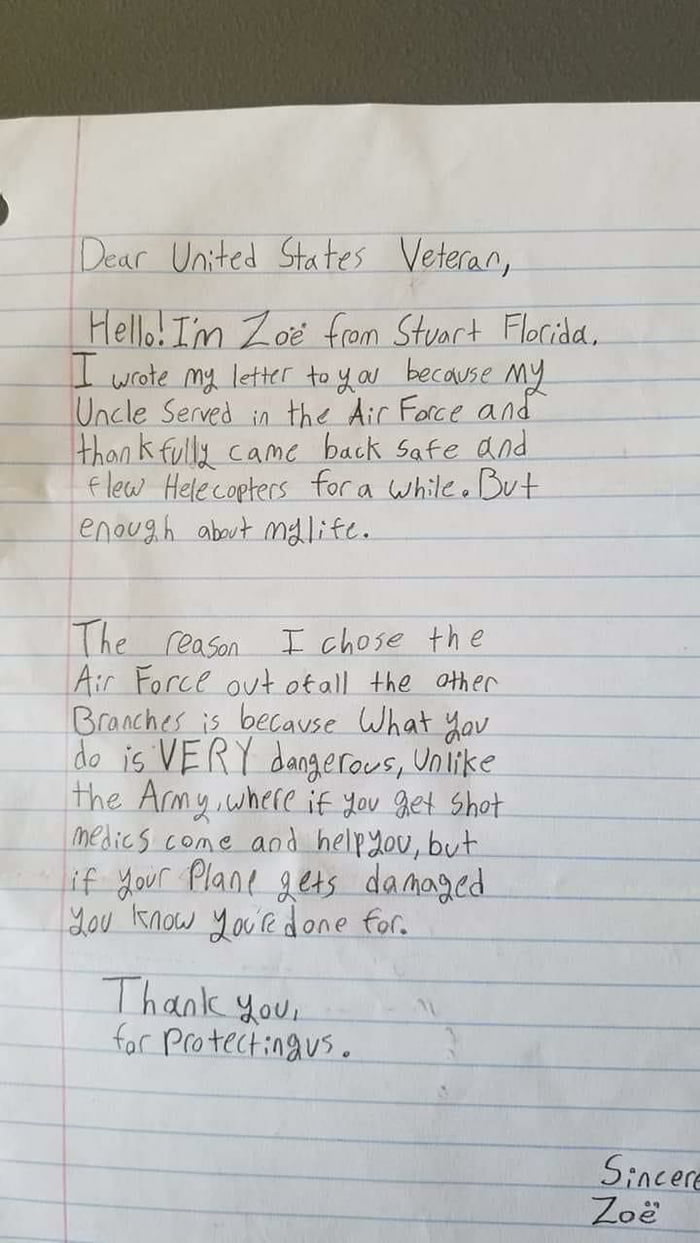 Dear United States Veteran,
Hello! I'm Zoë from Stuart Florida.
I wrote my letter to you because my
Uncle Served in the Air Force and
thankfully came back safe and
flew Helecopters for a while. But
enough about my life.
The reason I chose the
Air Force out of all the other
Branches is because What you
do is VERY dangerous, Unlike
the Army, where if you get shot
medics come and help you, but
if your Plane gets damaged
you know you're done for.
Thank you,
for Protecting us.
Sincere
Zoë